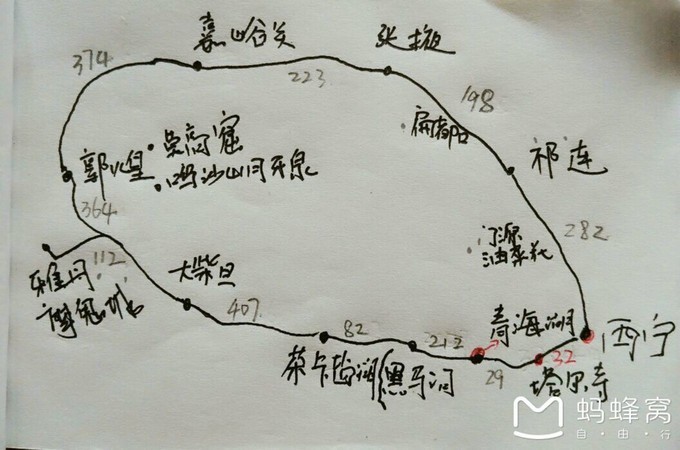 嘉峪关
张掖
374
223
198
扁都口
祁连
郭煌
·莫高窟
·鸣沙山月牙泉
364
282
门源
油菜花
112
雅丹
魔鬼城
大柴旦
407
82
212
青海湖
西宁
32
29
茶卡盐湖
黑马河
塔尔寺
蚂蜂窝
自·由·行